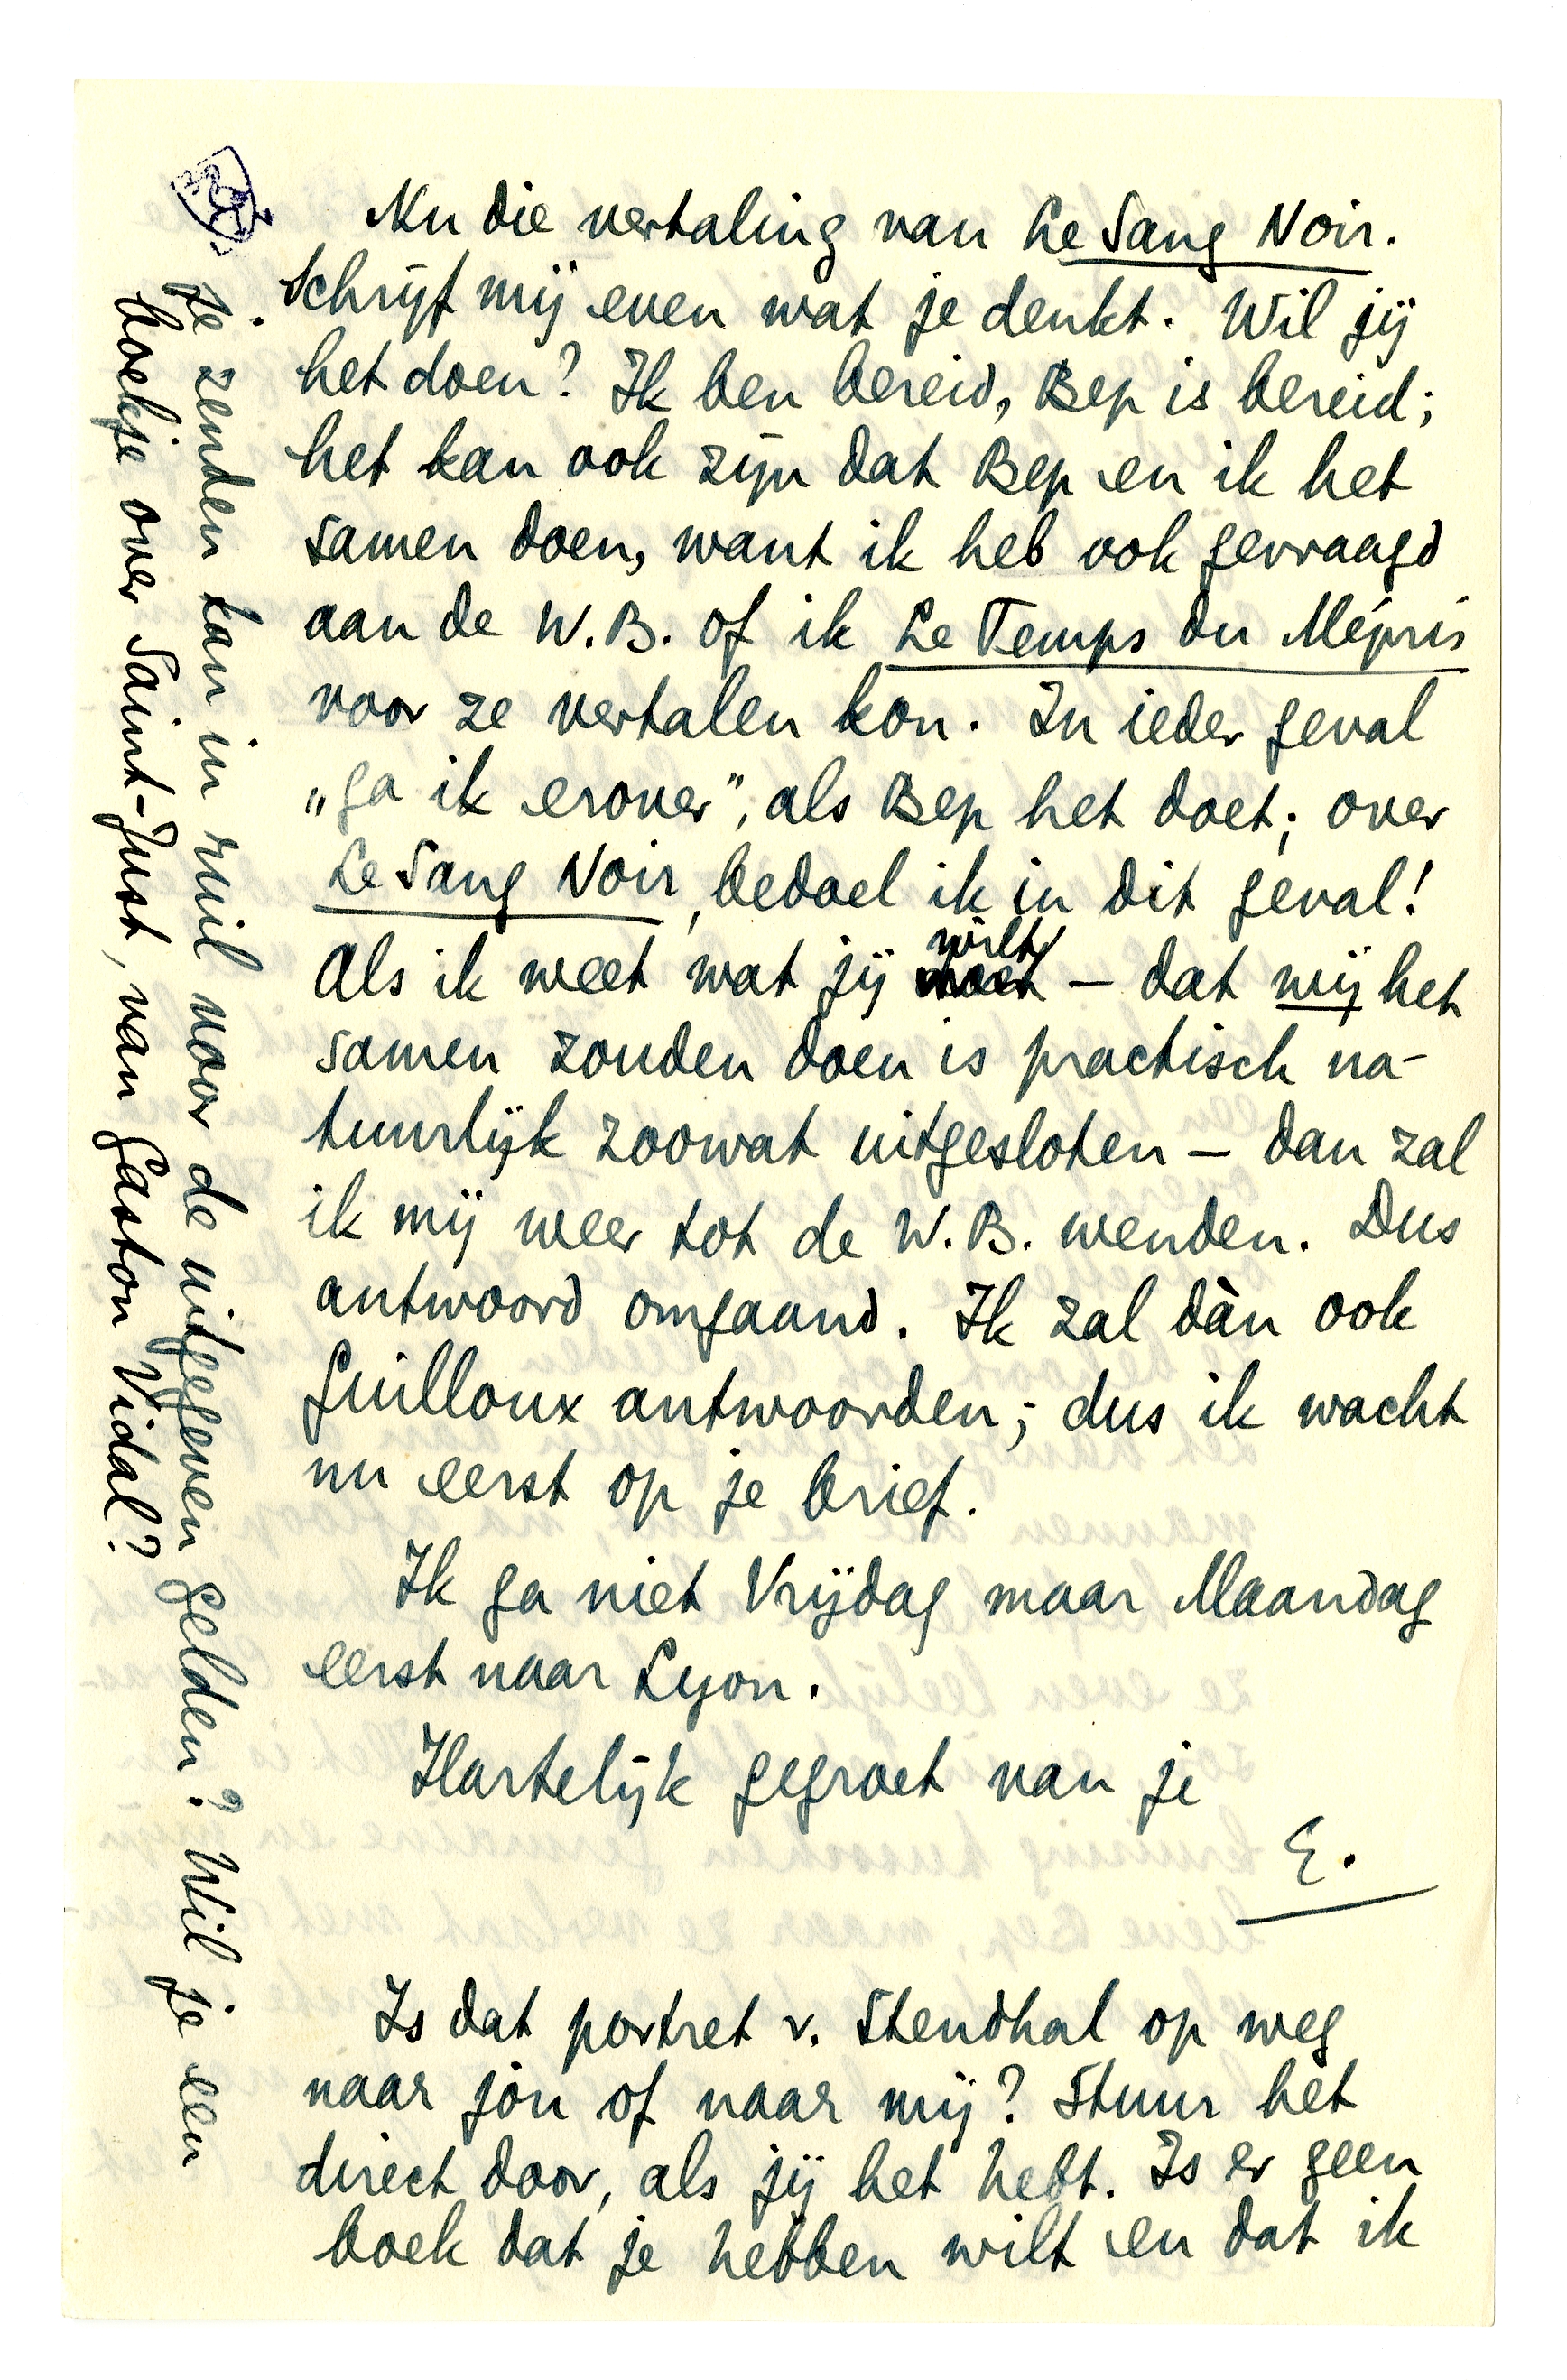 Nu die vertaling van Le Sang Noir.
Schrijf mij even wat je denkt. Wil jij
het doen? Ik ben bereid, Bep is bereid;
het kan ook zijn dat Bep en ik het
samen doen, want ik heb ook gevraagd
aan de W.B. of ik Le Temps du Mépris
voor ze vertalen kon. In ieder geval
„ga ik erover", als Bep het doet; over
Le Sang Noir, bedoel ik in dit geval!
Als ik weet wat jij wilt — dat wij het
samen zouden doen is practisch na-
tuurlijk zoowat uitgesloten — dan zal
ik mij weer tot de W.B. wenden. Dus
antwoord omgaand. Ik zal dàn ook
Guilloux antwoorden; dus ik wacht
nu eerst op je brief.
Ik ga niet Vrijdag maar Maandag
eerst naar Lyon.
Hartelijk gegroet van je
E.
Is dat portret v. Stendhal op weg
naar jou of naar mij? Stuur het
direct door, als jij het hebt. Is er geen
boek dat je hebben wilt en dat ik
je zenden kan in ruil voor de uitgegeven gelden? Wil je een
boekje over Saint-Just, van Gaston Vidal?